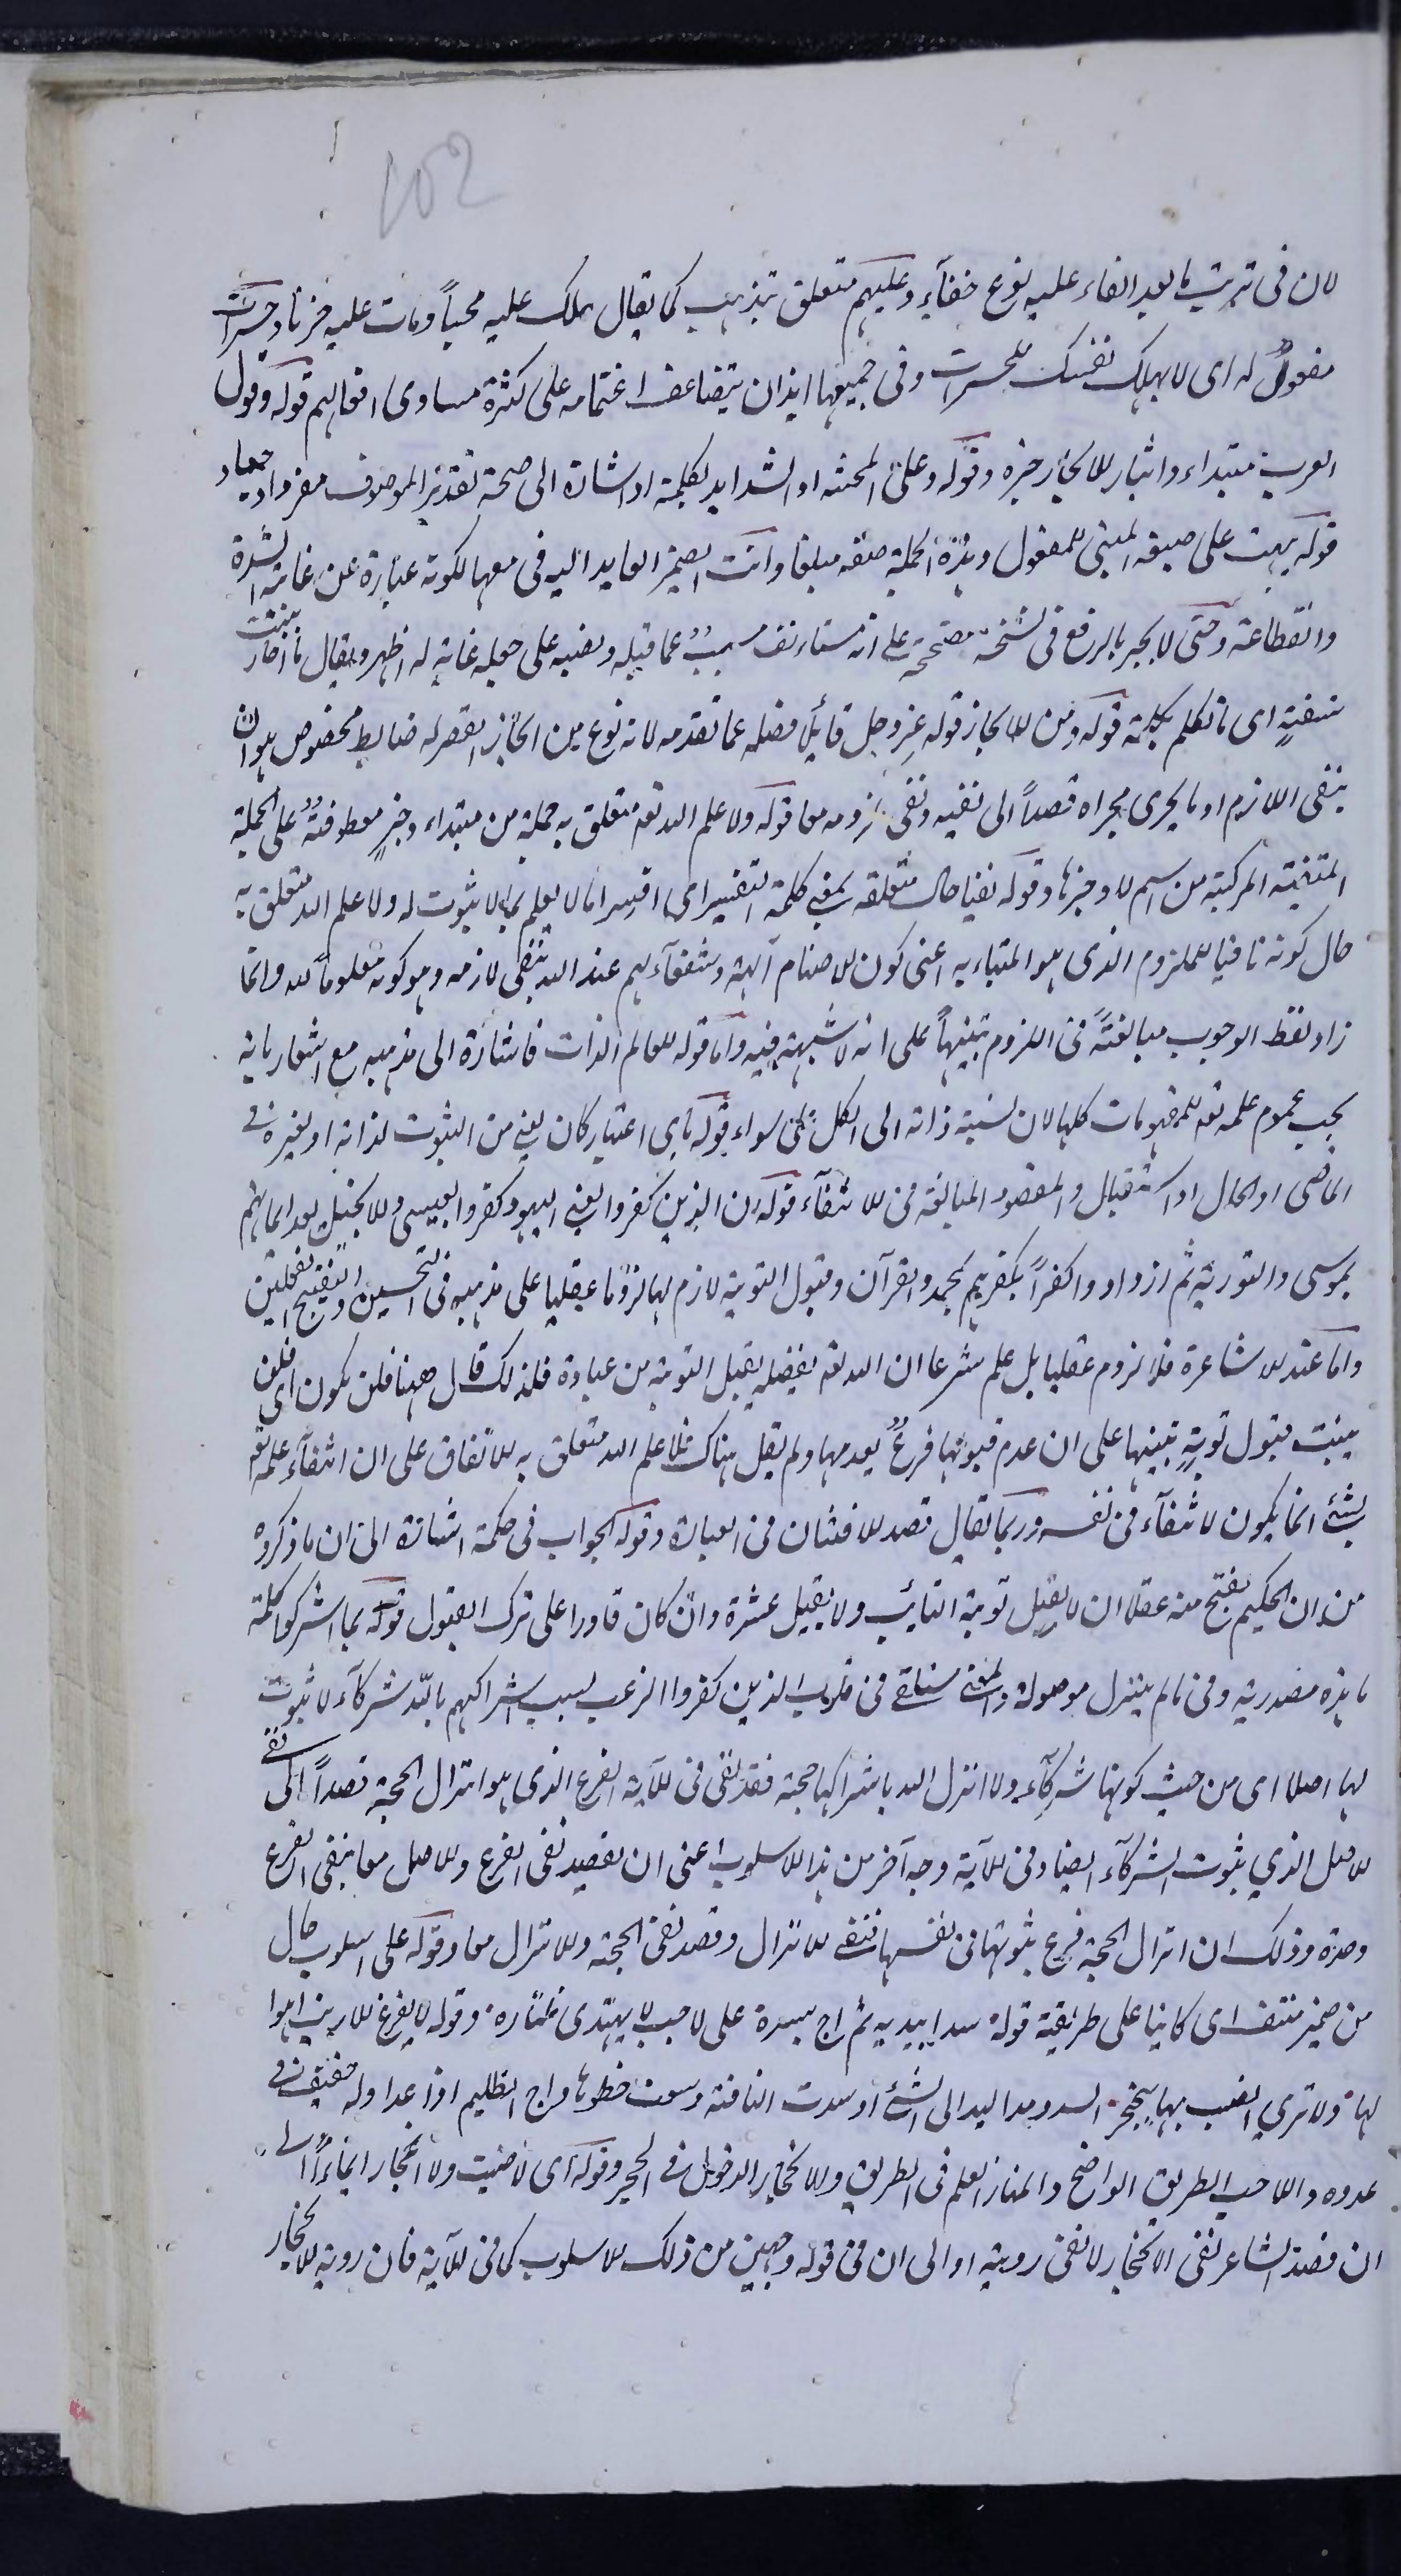 102
لان فى ترتب ما بعد الفاء عليه نوع خفآء وعليهم متعلق بتذهب كما يقال هلك عليه محباً ومات عليه حزنا وحسرات
مفعول له اى لا يهلك نفسك للحسرات وفى جميعها ايذان بتضاعف اغتمامه على كثرة مساوى افعالهم قوله وقول
العرب مبتداء واثبار للايجاز خبره وقوله وعلى المحنه او الشدايد بكلمة او اشارة الى صحة تقدير الموصوف مفردا وجمعا
قوله بهت على صيغة المبنى للمفعول وهذه الجملة صفة مبلغا وانث الضمير العايد اليه فى معها لكونه عبارة عن غاية الشدة
والفظاعة وحتى لا يجير بالرفع فى نسخة مصححة على انه مستانف مسبب عما قبله ونصبه على جعله غاية له اظهر ويقال ما احار ببنت
شفةٍ اى ما تكلم بكلمة قوله ومن للايجاز قوله عز وجل قائلا فصله عما تقدمه لانه نوع من ايجاز القصر له ضابط مخصوص هو ان
ينفى اللازم او ما يجرى مجراه قصداً الى نفيه ونفى ملزومه معا قوله ولا علم الله تعه متعلق به جملة من مبتداء وخبر معطوفة على الجملة
المنفية المركبة من اسم لا وخبرها وقوله نفيا حال متعلقة بمعنى كلمة التفسير اى افسر اما لا يعلم بما لا ثبوت له ولا علم الله متعلق به
حال كونه نافيا للملزوم الذى هو المنباء به اعنى كون للاصنام آلهة وشفعآءهم عند الله بنفى لازمه وهو كونه معلوماً لله وانما
زاد لفظ الوجوب مبالغةً فى اللزوم تنبيهاً على انه لا شبهة فيه واما قوله للعالم الذات فاشارة الى مذهبه مع اشعار بانه
يجب عموم علمه تعه للمفهومات كلها لان نسبة ذاته الى الكل على سواء قوله باى اعتبار كان يعنى من الثبوت لذاته او لغيره فى
الماضى او الحال او الاستقبال والمقصود المبالغة فى للانتفآء قوله ان الذين كفروا يعنى اليهود كفروا بعيسى وللانجيل بعد ايمانهم
بموسى والتورية ثم ازدادوا كفراً بكفرهم بمحمد والقرآن وقبول التوبة لازم لها لزوما عقليا على مذهبه فى التحسين والتقبيح العقليين
واما عند للاشاعرة فلا لزوم عقليا بل علم شرعا ان الله تعه بفضله يقبل التوبة من عباده فلذلك قال ههنا فلن يكون اى فلن
يثبت قبول توبةٍ تنبيها على ان عدم قبولها فرع بعدمها ولم يقل هناك فلا علم الله متعلق به للاتفاق على ان انتفآء علمه تعه
بشئ انما يكون لانتفآء فى نفسه وربما يقال قصد للافتنان فى العبارة وقوله الجواب فى حكمة اشارة الى ان ما ذكروه
من ان الحكيم يقبح منه عقلا ان لا يقبل توبة التائب ولا يقيل عثرة وان كان قادرا على ترك القبول قوله بما اشركوا كلمة
ما هذه مصدرية وفى ما لم ينزل موصولة والمعنى سنلقى فى قلوب الذين كفروا الرعب بسبب اشراكهم بالله شركآء لا ثبوت
لها اصلا اى من حيث كونها شركآء ولا انزل الله باشراكها حجة فقد نفى فى للآية الفرع الذى هو انزال الحجة قصداً الى نفى
للاصل الذى ثبوت الشركآء ايضا وفى للآية وجه آخر من هذا للاسلوب اعنى ان يقصد نفى الفرع وللاصل معا بنفى الفرع
وحده وذلك ان انزال الحجة فرع ثبوتها فى نفسها فنفى للانزال وقصد نفى الحجة وللانزال معا وقوله على اسلوب حال
من ضمير منتف اى كائنا على طريقة قوله سدا بيديه ثم اج بسيره على لاحب لا يهتدى بمناره وقوله لا يفزع للارنب اهوا
لها ولا ترى الضب بها ينجحر السدو مد اليد الى الشئ او سدت الناقة وسعت خطوها واج الظليم اذا عدا وله حفيف فى
عدوه واللاحب الطريق الواضح والمنار العلم فى الطريق وللانجحار الدخول فى الحجر وقوله اى لا ضب ولا انجحار ايماءاً الى
ان قصد الشاعر نفى الانجحار لا نفى روية او الى ان فى قوله وجهين من ذلك للاسلوب كما فى للآية فان روية للانجحار